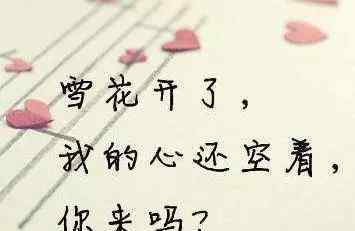 雪花开了，
我的心还空着，
你来吗？